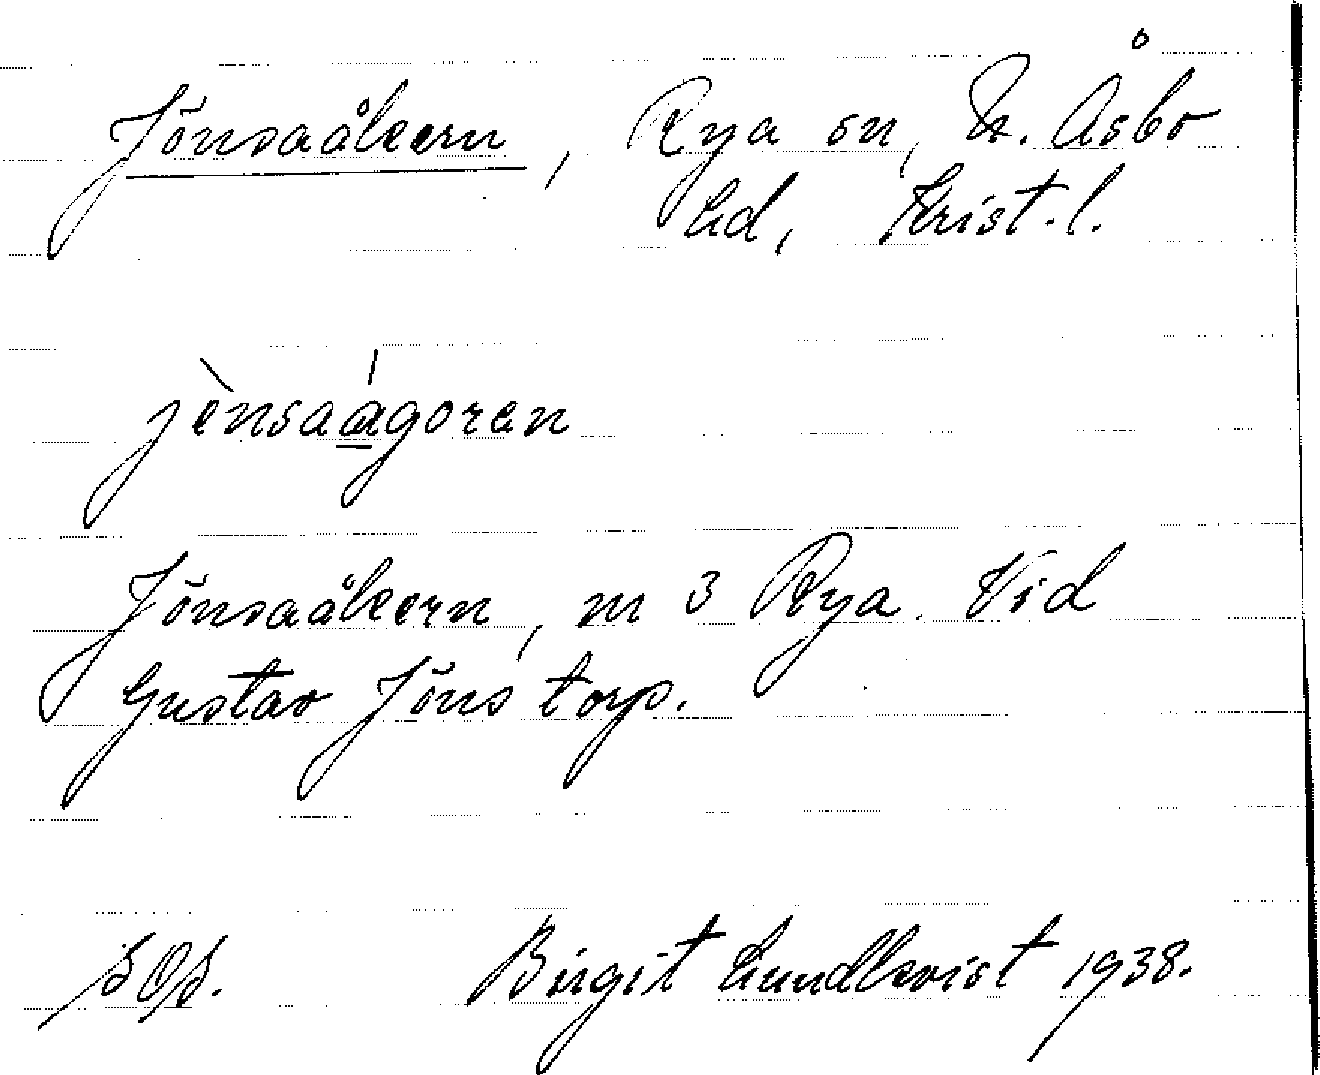 Jönsaåkern, Rya sn, N. Åsbo
hd, Krist. l.
jènsaágoren
Jönsaåkern, m 3 Rya. Vid
Gustav Jöns torp.
Birgit Lundkvist 1938.